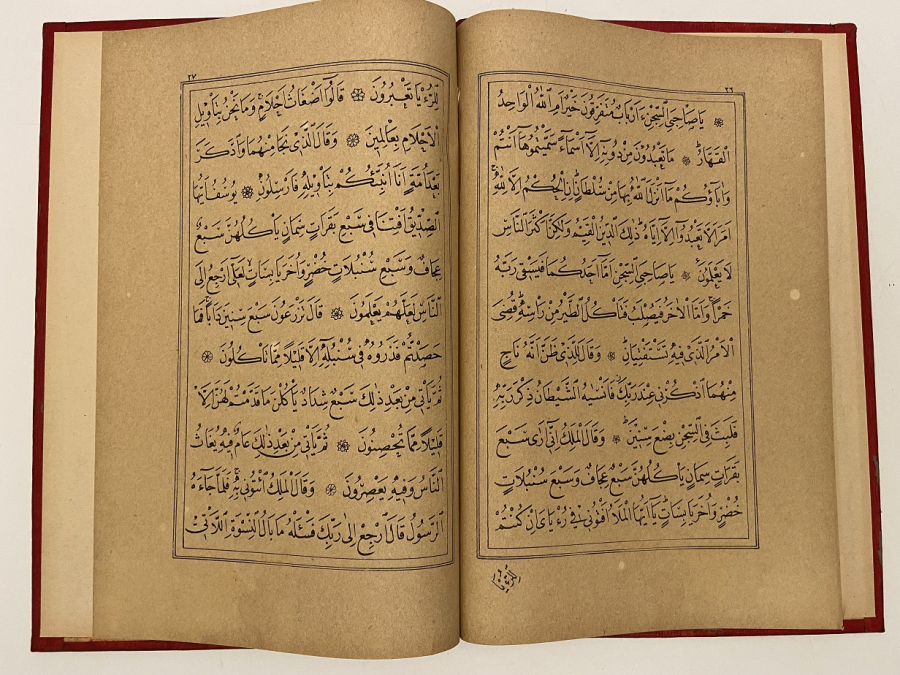 ٢٦
۞ يَاصَاحِبَيِ السِّجْنِ ءَاَرْبَابٌ مُتَفَرِّقُونَ خَيْرٌ اَمِ اللّٰهُ الْوَاحِدُ
الْقَهَّارُ ۞ مَا تَعْبُدُونَ مِنْ دُونِهِ اِلَّا اَسْمَاءً سَمَّيْتُمُوهَا اَنْتُمْ
وَاٰبَاؤُكُمْ مَا اَنْزَلَ اللّٰهُ بِهَا مِنْ سُلْطَانٍ اِنِ الْحُكْمُ اِلَّا لِلّٰهِ
اَمَرَ اَلَّا تَعْبُدُوا اِلَّا اِيَّاهُ ذٰلِكَ الدِّينُ الْقَيِّمُ وَلٰكِنَّ اَكْثَرَ النَّاسِ
لَا يَعْلَمُونَ ۞ يَاصَاحِبَيِ السِّجْنِ اَمَّا اَحَدُكُمَا فَيَسْقِي رَبَّهُ
خَمْرًا وَاَمَّا الْاٰخَرُ فَيُصْلَبُ فَتَاْكُلُ الطَّيْرُ مِنْ رَاْسِهِ قُضِيَ
الْاَمْرُ الَّذِي فِيهِ تَسْتَفْتِيَانِ ۞ وَقَالَ لِلَّذِي ظَنَّ اَنَّهُ نَاجٍ
مِنْهُمَا اذْكُرْنِي عِنْدَ رَبِّكَ فَاَنْسٰيهُ الشَّيْطَانُ ذِكْرَ رَبِّهِ
فَلَبِثَ فِي السِّجْنِ بِضْعَ سِنِينَ ۞ وَقَالَ الْمَلِكُ اِنِّي اَرٰى سَبْعَ
بَقَرَاتٍ سِمَانٍ يَاْكُلُهُنَّ سَبْعٌ عِجَافٌ وَسَبْعَ سُنْبُلَاتٍ
خُضْرٍ وَاُخَرَ يَابِسَاتٍ يَا اَيُّهَا الْمَلَاُ اَفْتُونِي فِي رُءْيَايَ اِنْ كُنْتُمْ
لِلرُّءْيَا
٢٧
لِلرُّءْيَا تَعْبُرُونَ ۞ قَالُوا اَضْغَاثُ اَحْلَامٍ وَمَا نَحْنُ بِتَاْوِيلِ
الْاَحْلَامِ بِعَالِمِينَ ۞ وَقَالَ الَّذِي نَجَا مِنْهُمَا وَادَّكَرَ
بَعْدَ اُمَّةٍ اَنَا اُنَبِّئُكُمْ بِتَاْوِيلِهِ فَاَرْسِلُونِ ۞ يُوسُفُ اَيُّهَا
الصِّدِّيقُ اَفْتِنَا فِي سَبْعِ بَقَرَاتٍ سِمَانٍ يَاْكُلُهُنَّ سَبْعٌ
عِجَافٌ وَسَبْعِ سُنْبُلَاتٍ خُضْرٍ وَاُخَرَ يَابِسَاتٍ لَعَلِّي اَرْجِعُ اِلَى
النَّاسِ لَعَلَّهُمْ يَعْلَمُونَ ۞ قَالَ تَزْرَعُونَ سَبْعَ سِنِينَ دَاَبًا فَمَا
حَصَدْتُمْ فَذَرُوهُ فِي سُنْبُلِهِ اِلَّا قَلِيلًا مِمَّا تَاْكُلُونَ ۞
ثُمَّ يَاْتِي مِنْ بَعْدِ ذٰلِكَ سَبْعٌ شِدَادٌ يَاْكُلْنَ مَا قَدَّمْتُمْ لَهُنَّ اِلَّا
قَلِيلًا مِمَّا تُحْصِنُونَ ۞ ثُمَّ يَاْتِي مِنْ بَعْدِ ذٰلِكَ عَامٌ فِيهِ يُغَاثُ
النَّاسُ وَفِيهِ يَعْصِرُونَ ۞ وَقَالَ الْمَلِكُ ائْتُونِي بِهِ فَلَمَّا جَاءَهُ
الرَّسُولُ قَالَ ارْجِعْ اِلٰى رَبِّكَ فَسْئَلْهُ مَا بَالُ النِّسْوَةِ اللَّاتِي